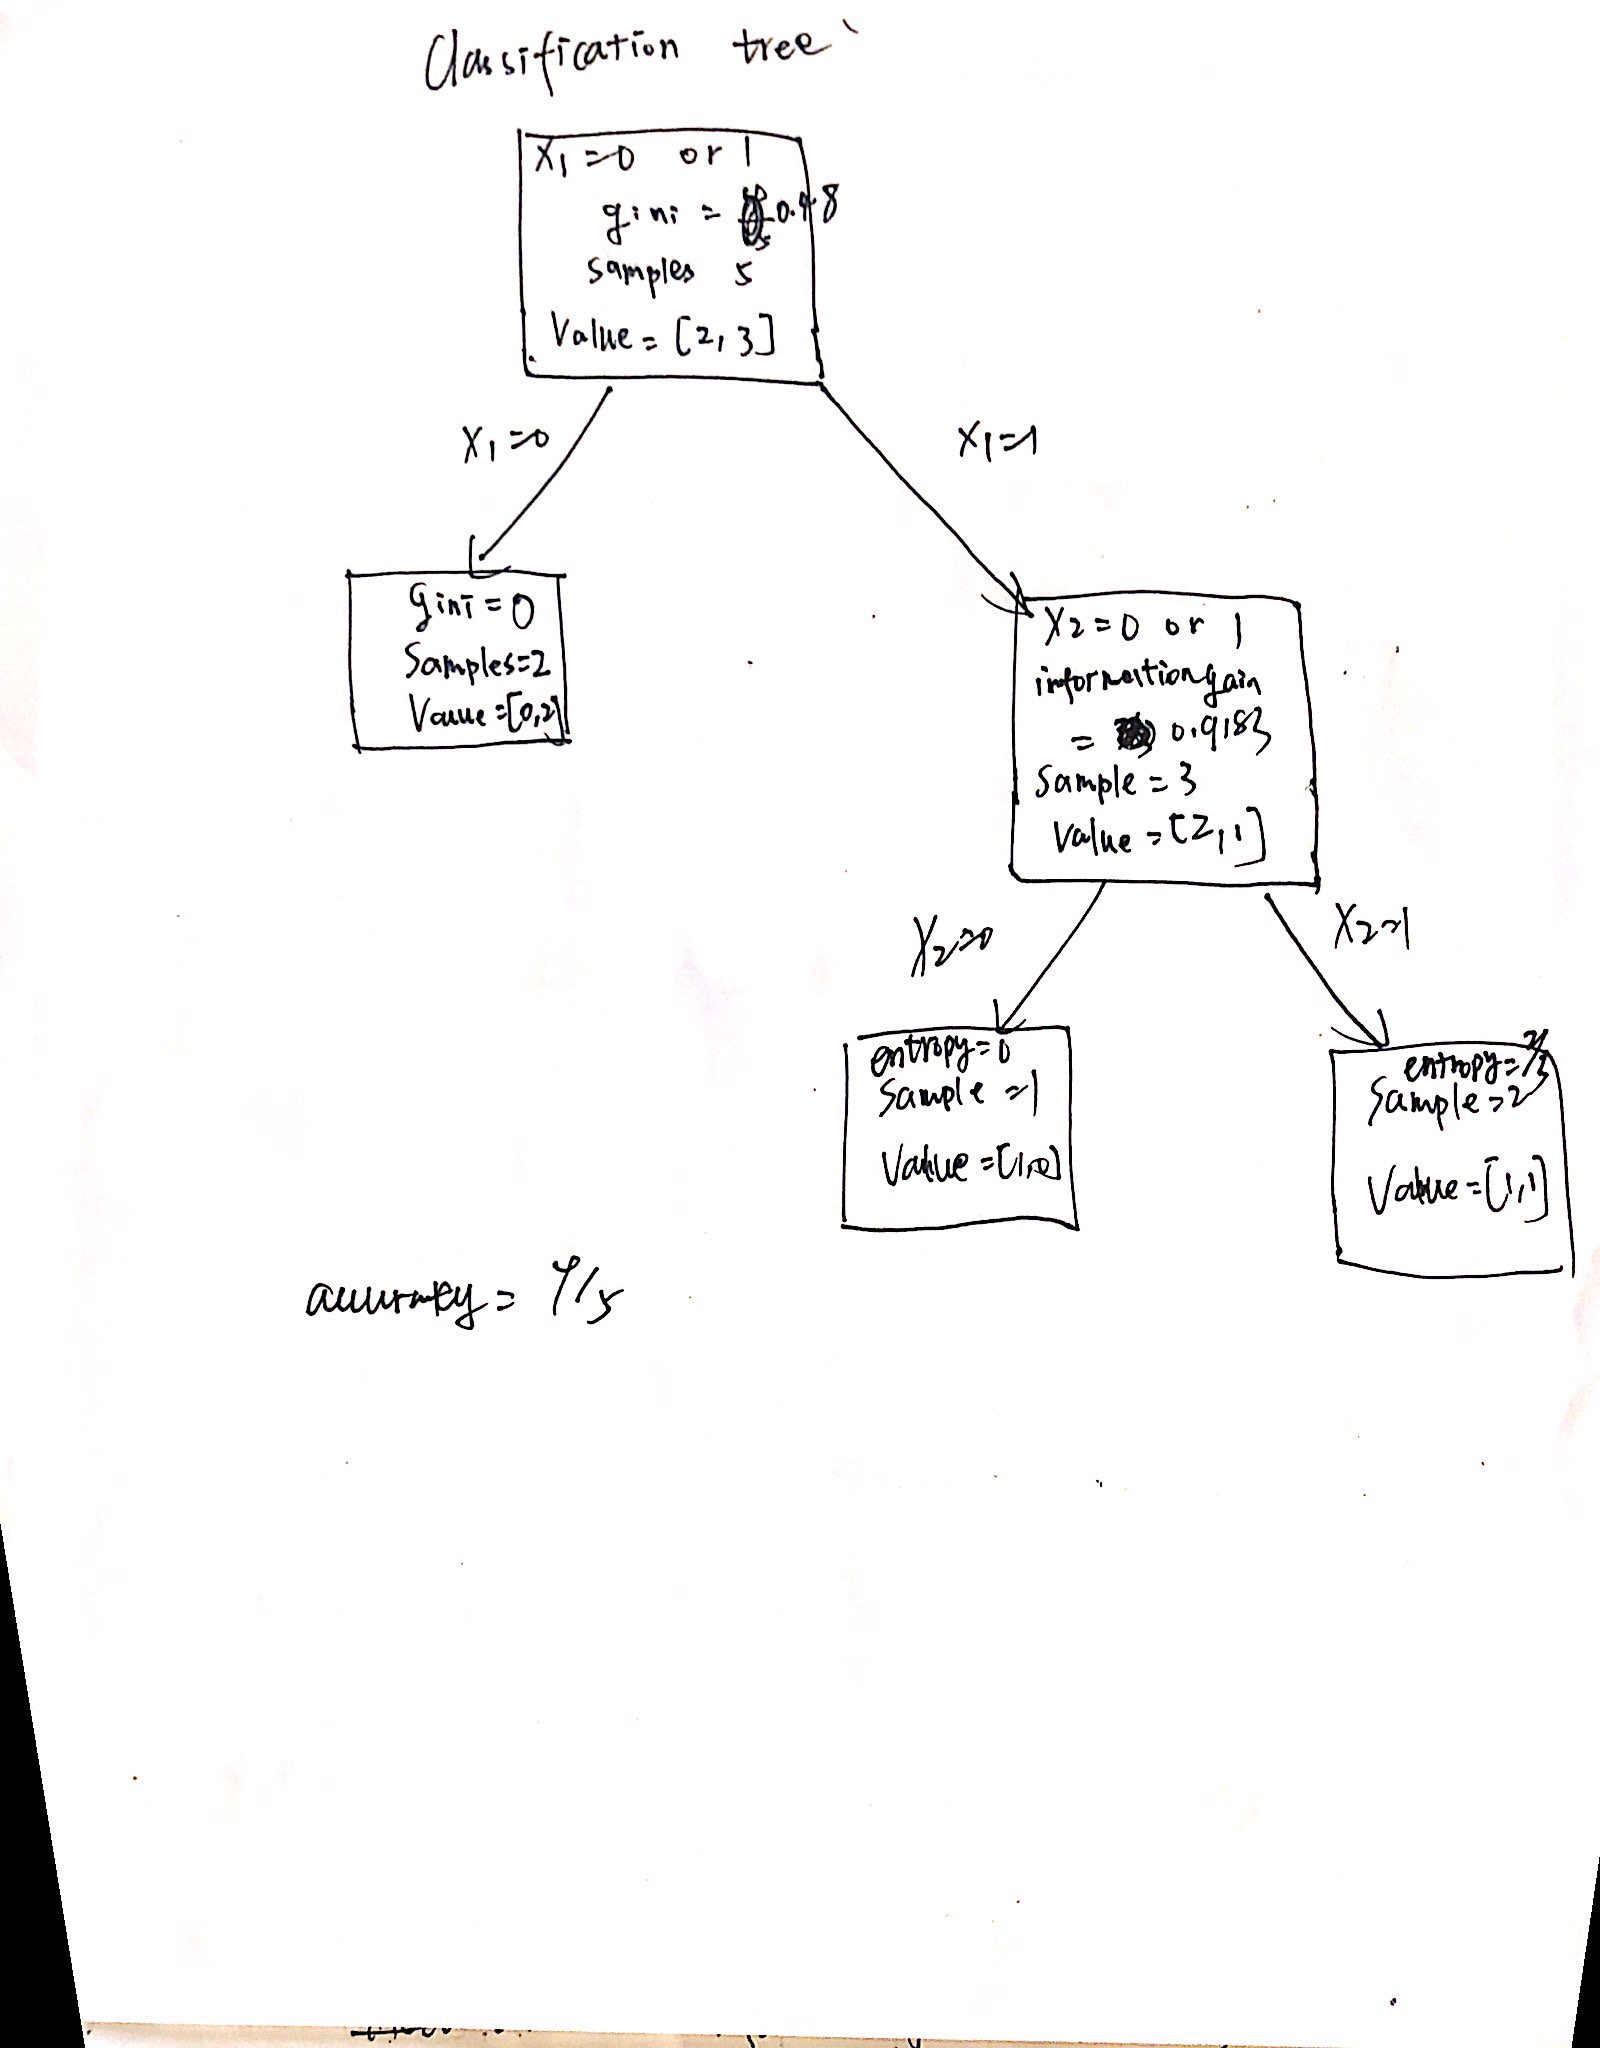 Classification tree
X1=0 or 1
gini = 0.48
samples 5
Value = [2,3]
X1=0
X1=1
Gini=0
Samples=2
Value=[0,2]
X2=0 or 1
information gain
= 0.9183
Sample = 3
Value = [2,1]
X2=0
X2=1
entropy=0
Sample =1
Value =[1,0]
entropy=2/3
Sample=2
Value=[1,1]
accuracy = 4/5